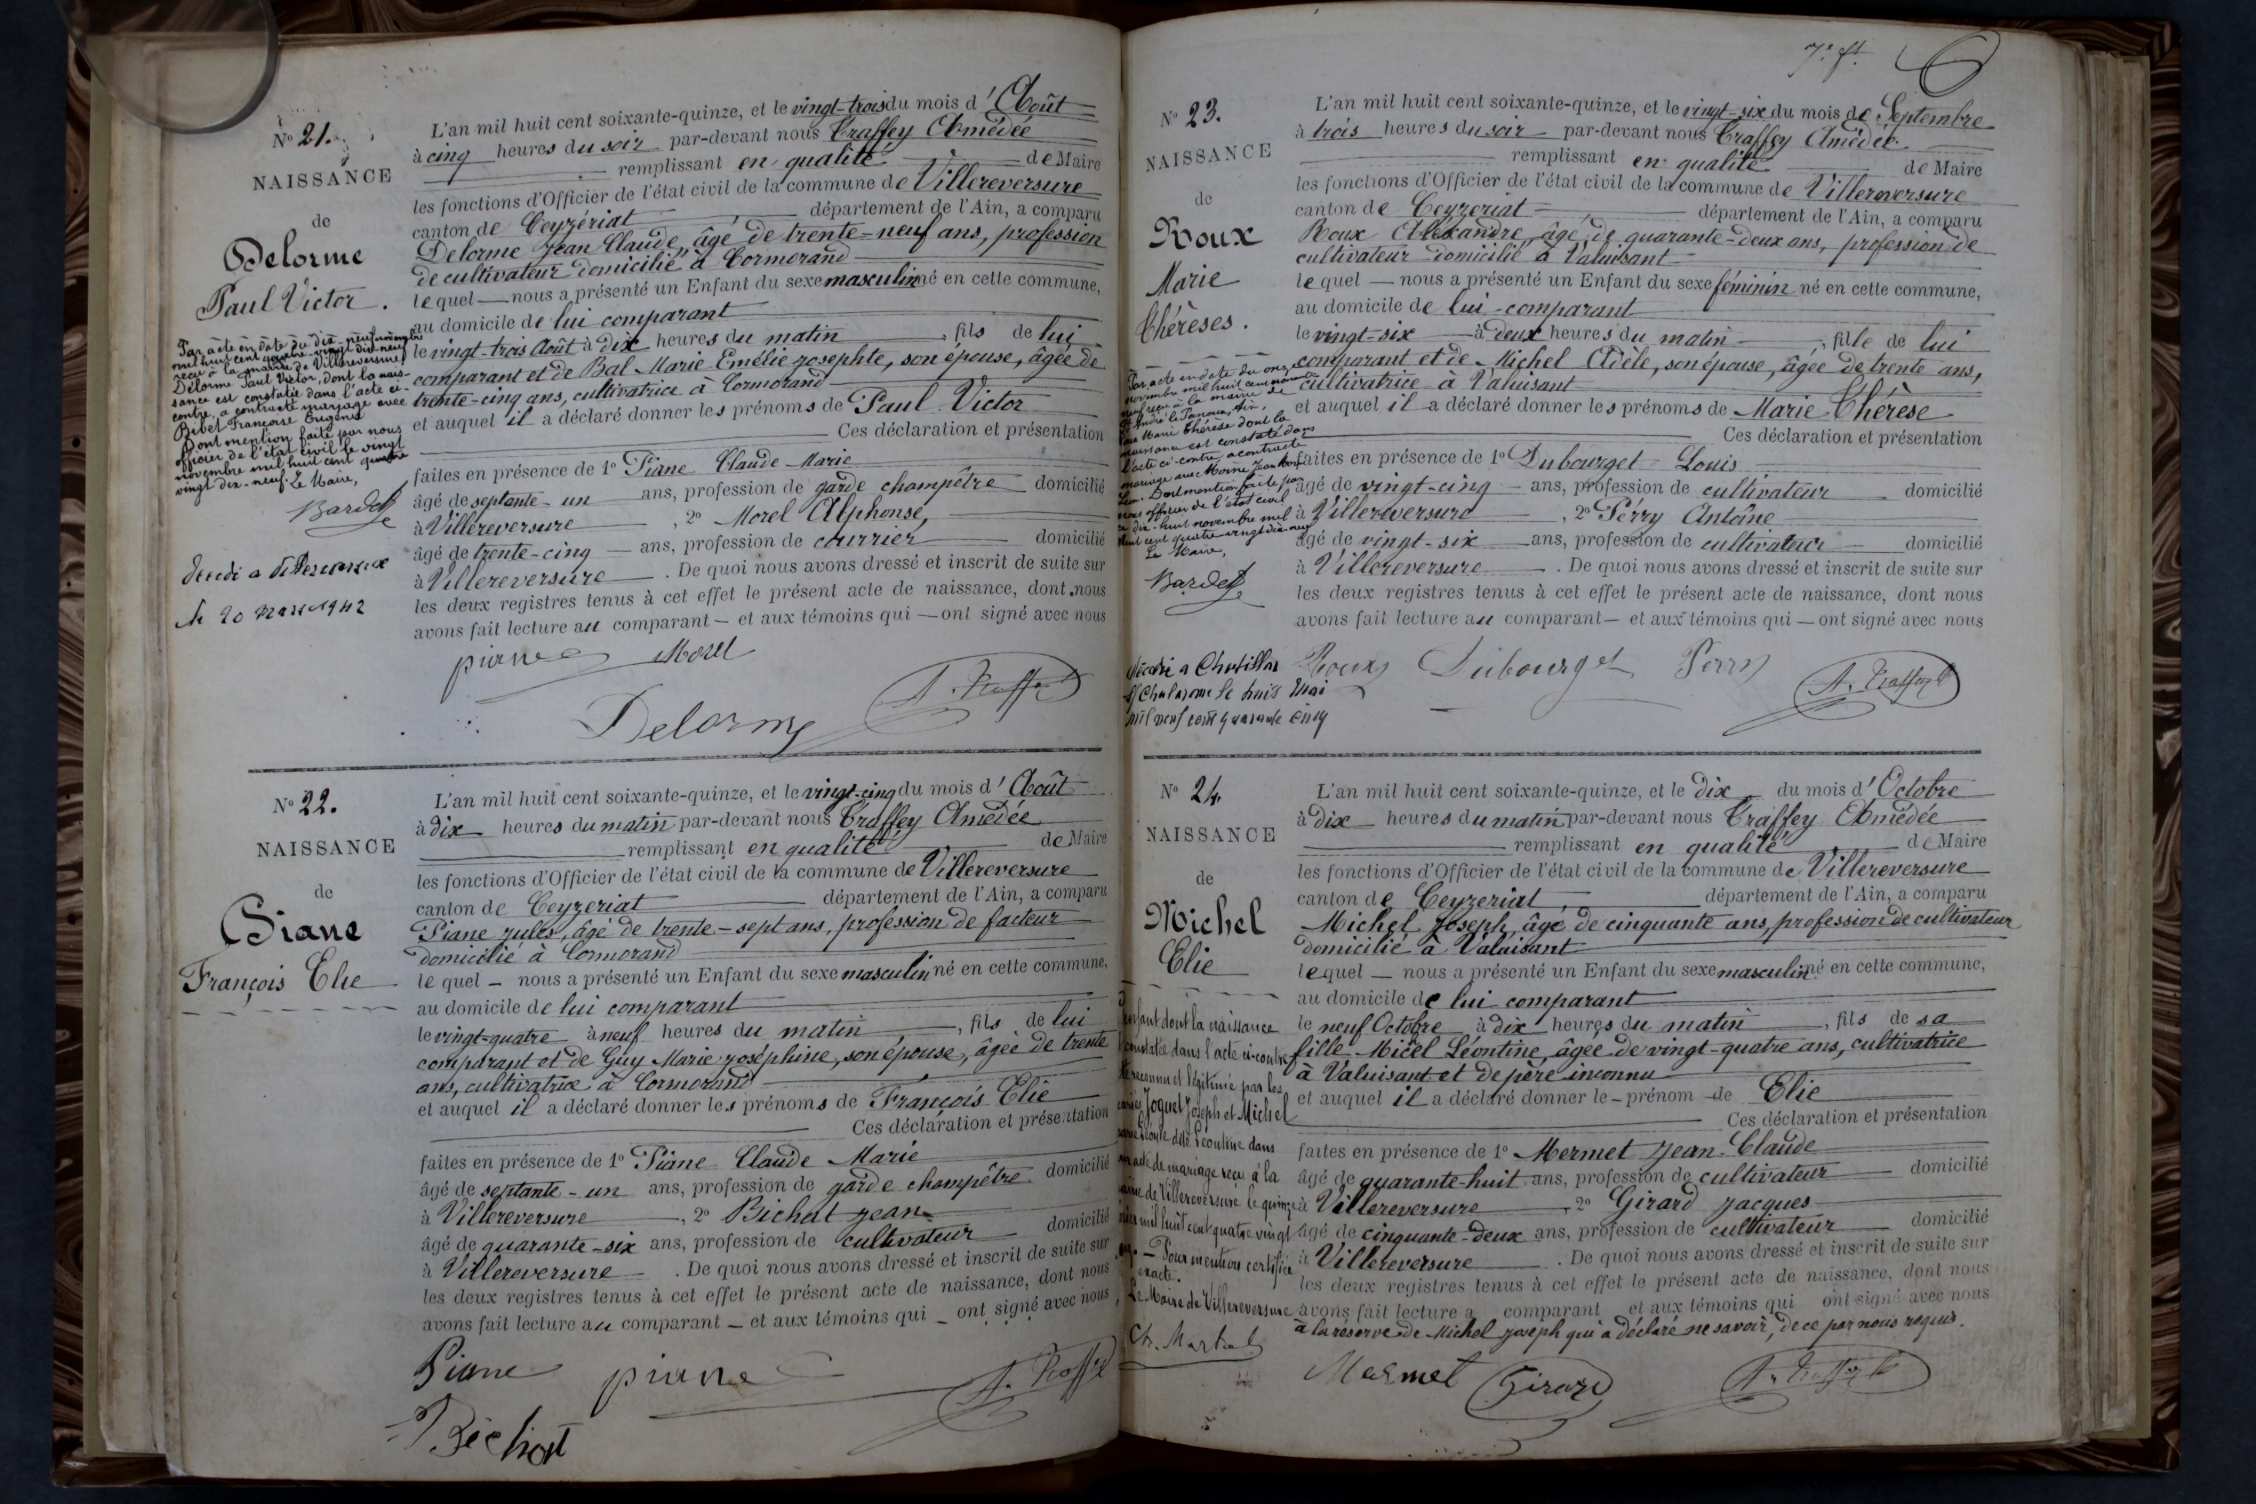 Nº 21.
NAISSANCE
de
Delorme
Paul Victor.
Par acte en date du dix-neuf novembre
mil huit cent quatre-vingt dix-neuf
reçu à la mairie de Villereversure
Delorme Paul Victor, dont la nais-
sance est constatée dans l'acte ci-
contre, a contracté mariage avec
Bibet Françoise Eugénie
Dont mention faite par nous
officier de l'état civil le vingt
novembre mil huit cent quatre
vingt dix-neuf. Le Maire,
Bardet
décédé a Villereversure
le 20 mars 1942
L'an mil huit cent soixante-quinze, et le vingt-trois du mois d'Août
à cinq heures du soir par-devant nous Traffey Amédée
remplissant en qualité de Maire
les fonctions d'Officier de l'état civil de la commune de Villereversure
canton de Ceyzériat département de l'Ain, a comparu
Delorme Jean Claude, âgé de trente-neuf ans, profession
de cultivateur domicilié à Cormorand
lequel nous a présenté un Enfant du sexe masculin né en cette commune,
au domicile de lui comparant
le vingt-trois Août à dix heures du matin, fils de lui
comparant et de Bal Marie Emélie Josephte, son épouse, âgée de
trente-cinq ans, cultivatrice à Cormorand
et auquel il a déclaré donner les prénoms de Paul Victor
Ces déclaration et présentation
faites en présence de 1º Piane Claude Marie
âgé de septante-un ans, profession de garde champêtre domicilié
à Villereversure, 2º Morel Alphonse,
âgé de trente-cinq ans, profession de courrier domicilié
à Villereversure. De quoi nous avons dressé et inscrit de suite sur
les deux registres tenus à cet effet le présent acte de naissance, dont nous
avons fait lecture au comparant — et aux témoins qui — ont signé avec nous
piane Morel
A. Traffey
Delorme
Nº 22.
NAISSANCE
de
Piane
François Elie
L'an mil huit cent soixante-quinze, et le vingt-cinq du mois d'Août
à dix heures du matin par-devant nous Traffey Amédée
remplissant en qualité de Maire
les fonctions d'Officier de l'état civil de la commune de Villereversure
canton de Ceyzeriat département de l'Ain, a comparu
Piane Jules, âgé de trente-sept ans, profession de facteur
domicilié à Cormorand
lequel — nous a présenté un Enfant du sexe masculin né en cette commune,
au domicile de lui comparant
le vingt-quatre à neuf heures du matin, fils de lui
comparant et de Guy Marie Joséphine, son épouse, âgée de trente
ans, cultivatrice à Cormorand
et auquel il a déclaré donner les prénoms de François Elie
Ces déclaration et présentation
faites en présence de 1º Piane Claude Marie
âgé de septante-un ans, profession de garde champêtre domicilié
à Villereversure, 2º Bichat Jean
âgé de quarante-six ans, profession de cultivateur domicilié
à Villereversure. De quoi nous avons dressé et inscrit de suite sur
les deux registres tenus à cet effet le présent acte de naissance, dont nous
avons fait lecture au comparant — et aux témoins qui — ont signé avec nous
Piane piane A. Traffey
Béchat
7e ft.
Nº 23.
NAISSANCE
de
Roux
Marie
Thérèses.
Par acte en date du onze
novembre mil huit cent nonante
neuf reçu à la mairie de
St André le Panoux, Ain,
Roux Marie Thérèse dont la
naissance est constatée dans
l'acte ci-contre, a contracté
mariage avec Morne Jean
Dont mention faite par
nous officier de l'état civil
le dix-huit novembre mil
huit cent quatre-vingt dix-neuf
Le Maire,
Bardet
décédée a Chatillon
s/ Chalaronne le huit Mai
mil neuf cent quarante cinq
L'an mil huit cent soixante-quinze, et le vingt-six du mois de Septembre
à trois heures du soir par-devant nous Traffey Amédée
remplissant en qualité de Maire
les fonctions d'Officier de l'état civil de la commune de Villereversure
canton de Ceyzeriat département de l'Ain, a comparu
Roux Alexandre, âgé de quarante-deux ans, profession de
cultivateur domicilié à Valuisant
lequel — nous a présenté un Enfant du sexe féminin né en cette commune,
au domicile de lui comparant
le vingt-six à deux heures du matin, fille de lui
comparant et de Michel Adèle, son épouse, âgée de trente ans,
cultivatrice à Valuisant
et auquel il a déclaré donner les prénoms de Marie Thérèse
Ces déclaration et présentation
faites en présence de 1º Dubourget Louis
âgé de vingt-cinq ans, profession de cultivateur domicilié
à Villereversure, 2º Pérry Antoine
âgé de vingt-six ans, profession de cultivateur domicilié
à Villereversure. De quoi nous avons dressé et inscrit de suite sur
les deux registres tenus à cet effet le présent acte de naissance, dont nous
avons fait lecture au comparant — et aux témoins qui — ont signé avec nous
Roux Dubourget Perry A. Traffey
Nº 24.
NAISSANCE
de
Michel
Elie
enfant dont la naissance
constatée dans l'acte ci-contre
reconnu et légitimé par les
Joguet Joseph et Michel
dite Léontine dans
acte de mariage reçu à la
mairie de Villereversure le quinze
mil huit cent quatre vingt
— Pour mention certifiée
exacte.
Le Maire de Villereversure
Ch. Martel
L'an mil huit cent soixante-quinze, et le dix du mois d'Octobre
à dix heures du matin par-devant nous Traffey Amédée
remplissant en qualité de Maire
les fonctions d'Officier de l'état civil de la commune de Villereversure
canton de Ceyzeriat, département de l'Ain, a comparu
Michel Joseph, âgé de cinquante ans, profession de cultivateur
domicilié à Valuisant
lequel — nous a présenté un Enfant du sexe masculin né en cette commune,
au domicile de lui comparant
le neuf Octobre à dix heures du matin, fils de sa
fille Micel Léontine, âgée de vingt-quatre ans, cultivatrice
à Valuisant et de père inconnu
et auquel il a déclaré donner le — prénom — de Elie
Ces déclaration et présentation
faites en présence de 1º Mermet Jean Claude
âgé de quarante-huit ans, profession de cultivateur domicilié
à Villereversure, 2º Girard Jacques
âgé de cinquante-deux ans, profession de cultivateur domicilié
à Villereversure. De quoi nous avons dressé et inscrit de suite sur
les deux registres tenus à cet effet le présent acte de naissance, dont nous
avons fait lecture a comparant et aux témoins qui ont signé avec nous
à la réserve de Michel Joseph qui a déclaré ne savoir, de ce par nous requis.
Mermet Girard A. Traffey